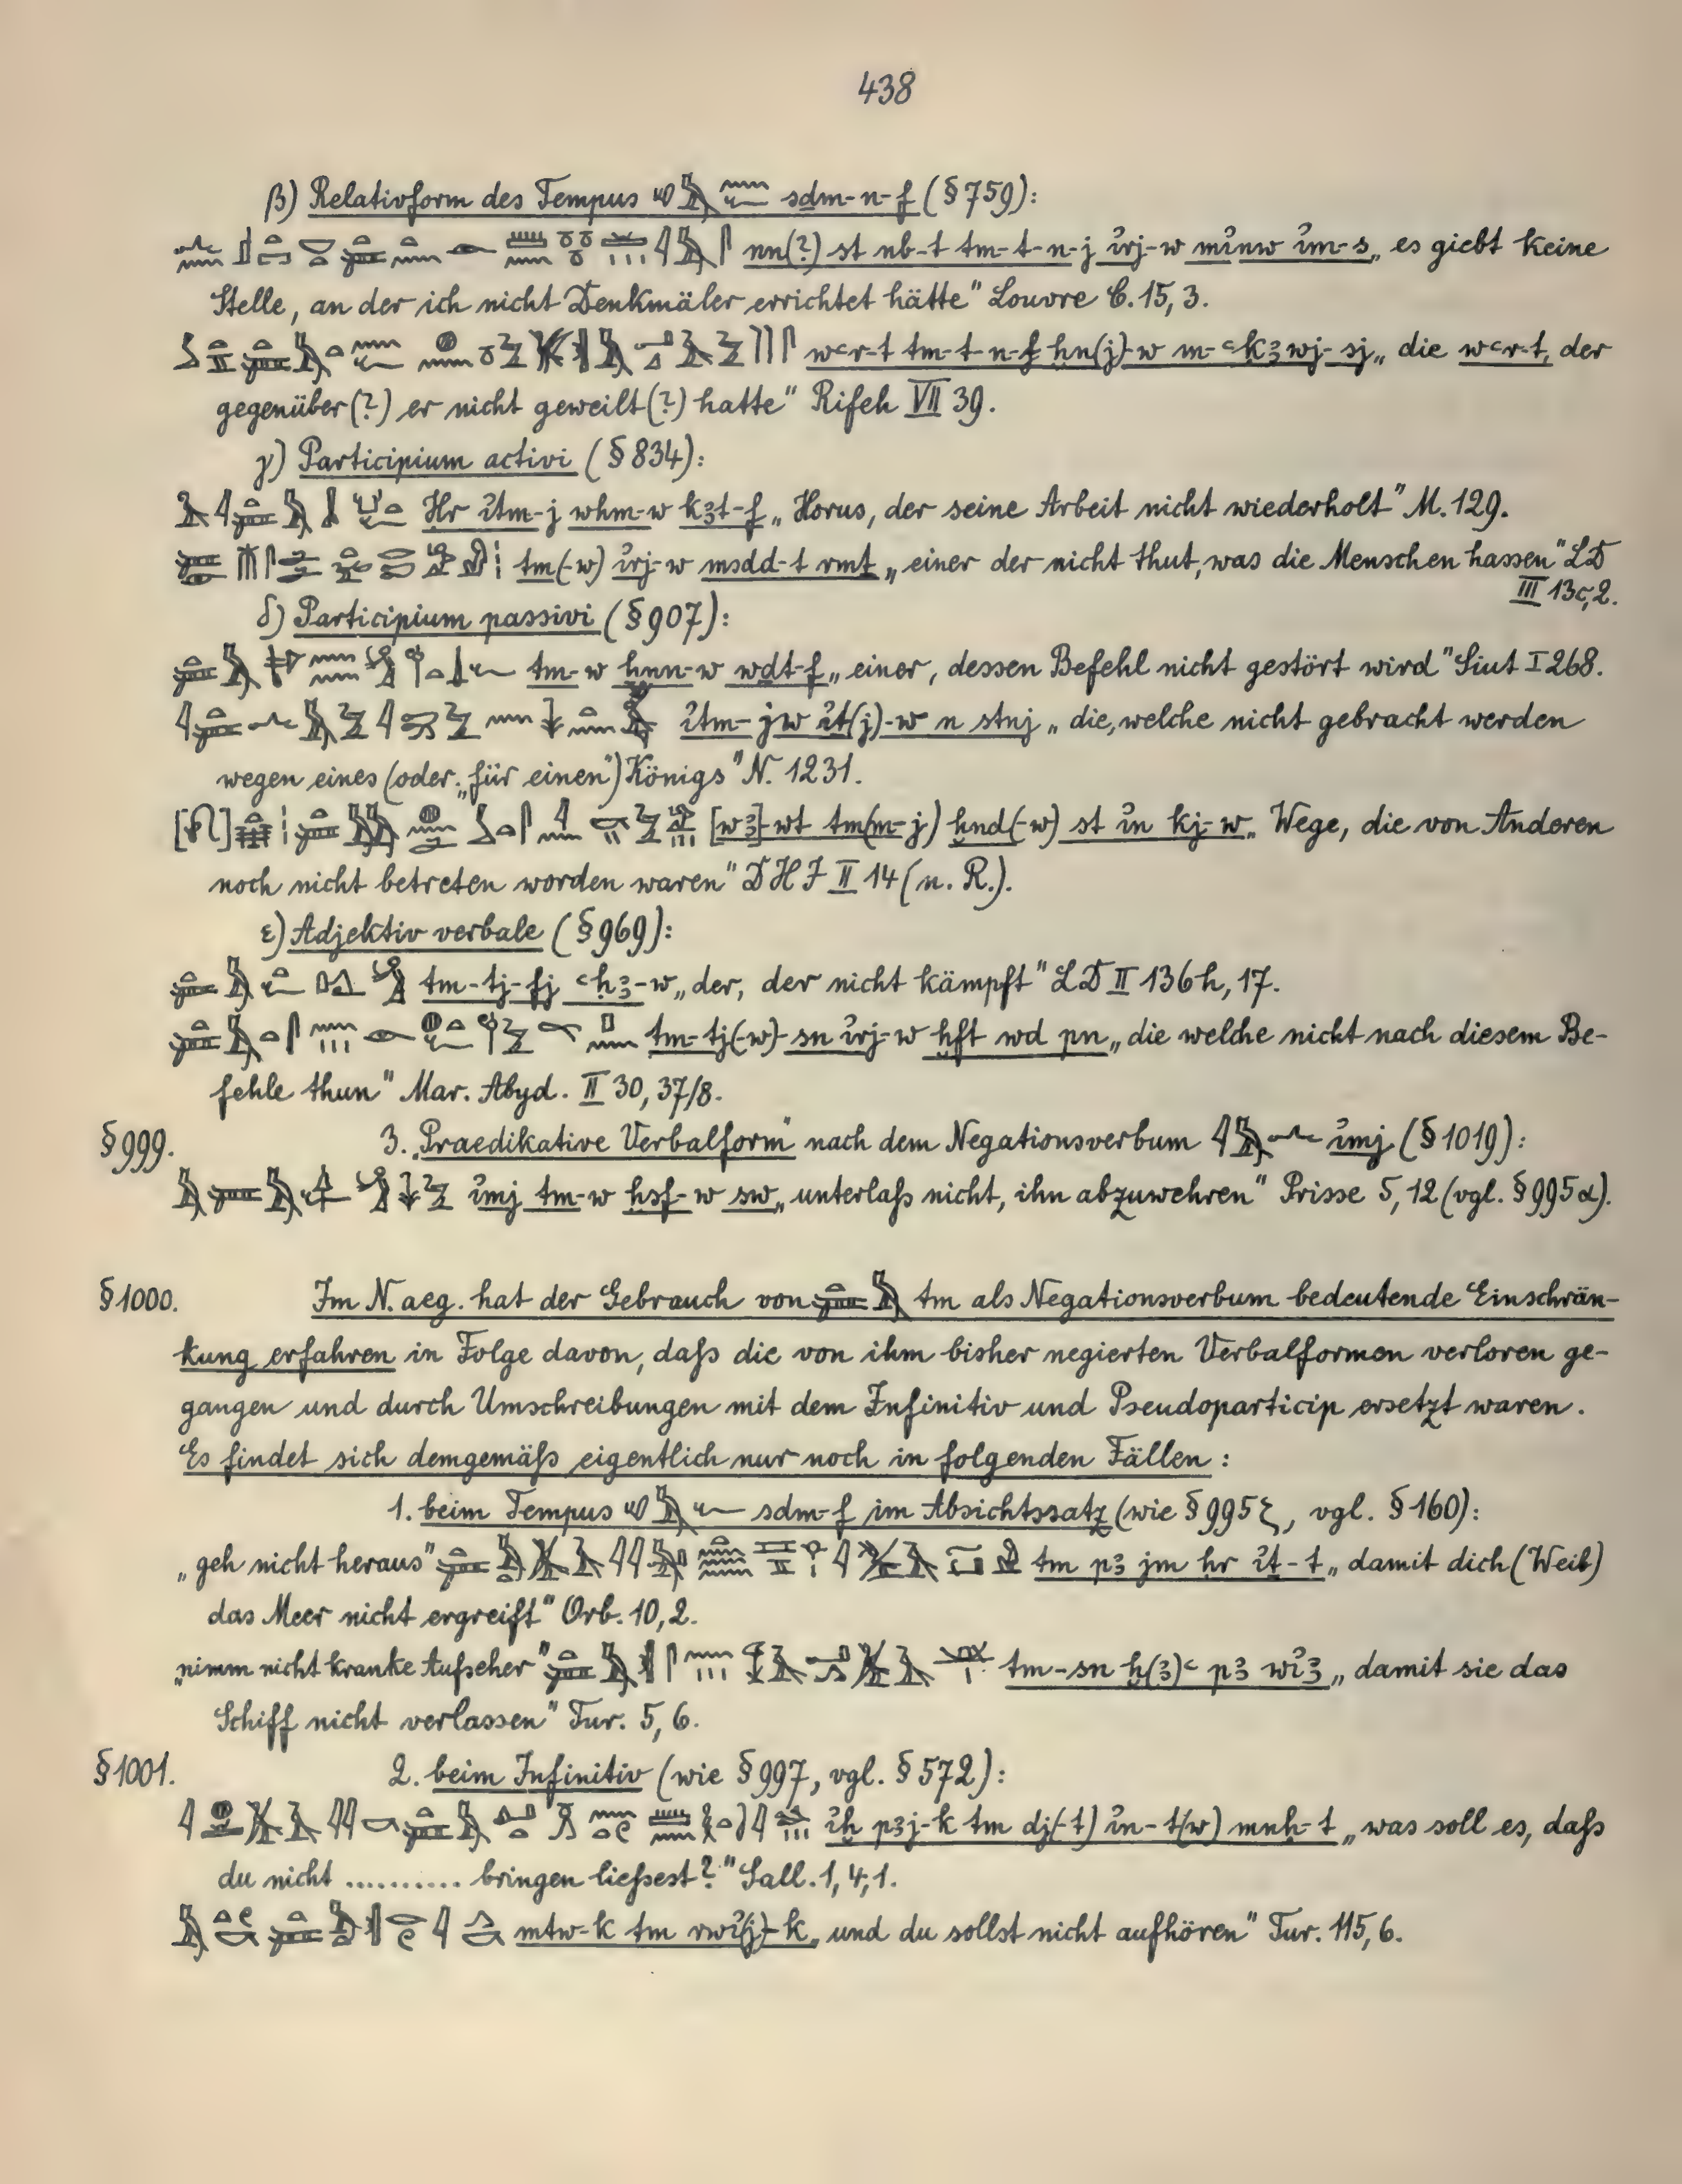 438
β) Relativform des Tempus sḏm-n-f (§ 759):
nn(?) st nb-t tm-t-n-j i҆rj-w mi҆nw i҆m-s „es giebt keine
Stelle, an der ich nicht Denkmäler errichtet hätte" Louvre C. 15, 3.
wꜥr-t tm-t-n-f ḫn(j)-w m-ꜥkꜣwj-sj „die wꜥr-t, der
gegenüber(?) er nicht geweilt(?) hatte" Rifeh VII 39.
γ) Participium activi (§ 834):
Ḥr i҆tm-j wḥm-w kꜣt-f „Horus, der seine Arbeit nicht wiederholt" M. 129.
tm(-w) i҆rj-w msdd-t rmṯ „einer der nicht thut, was die Menschen hassen" LD
III 13c, 2.
δ) Participium passivi (§ 907):
tm-w ẖnn-w wḏt-f „einer, dessen Befehl nicht gestört wird" Siut I 268.
i҆tm-jw i҆ṯ(j)-w n stnj „die, welche nicht gebracht werden
wegen eines (oder „für einen") Königs" N. 1231.
[wꜣ]-wt tm(m-j) ḫnd(-w) st i҆n kj-w „Wege, die von Anderen
noch nicht betreten worden waren" DHI II 14 (n. R.).
ε) Adjektiv verbale (§ 969):
tm-tj-fj ꜥḥꜣ-w „der, der nicht kämpft" LD II 136h, 17.
tm-tj(-w)-sn i҆rj-w ḫft wḏ pn „die welche nicht nach diesem Be-
fehle thun" Mar. Abyd. II 30, 37/8.
§ 999. 3. „Praedikative Verbalform" nach dem Negationsverbum i҆mj (§ 1019):
i҆mj tm-w ḫsf-w sw „unterlaß nicht, ihn abzuwehren" Prisse 5, 12 (vgl. § 995 α).
§ 1000. Im N. aeg. hat der Gebrauch von tm als Negationsverbum bedeutende Einschrän-
kung erfahren in Folge davon, daß die von ihm bisher negierten Verbalformen verloren ge-
gangen und durch Umschreibungen mit dem Infinitiv und Pseudoparticip ersetzt waren.
Es findet sich demgemäß eigentlich nur noch in folgenden Fällen:
1. beim Tempus sḏm-f im Absichtssatz (wie § 995 ζ, vgl. § 160):
„geh nicht heraus" tm pꜣ jm ḥr i҆ṯ-t „damit dich (Weib)
das Meer nicht ergreift" Orb. 10, 2.
„nimm nicht kranke Aufseher" tm-sn ḫ(ꜣ)ꜥ pꜣ wi҆ꜣ „damit sie das
Schiff nicht verlassen" Tur. 5, 6.
§ 1001. 2. beim Infinitiv (wie § 997, vgl. § 572):
i҆ḫ pꜣj-k tm dj(-t) i҆n-t(w) mnḥ-t „was soll es, daß
du nicht .......... bringen ließest?" Sall. 1, 4, 1.
mtw-k tm rwi҆(j)-k „und du sollst nicht aufhören" Tur. 115, 6.